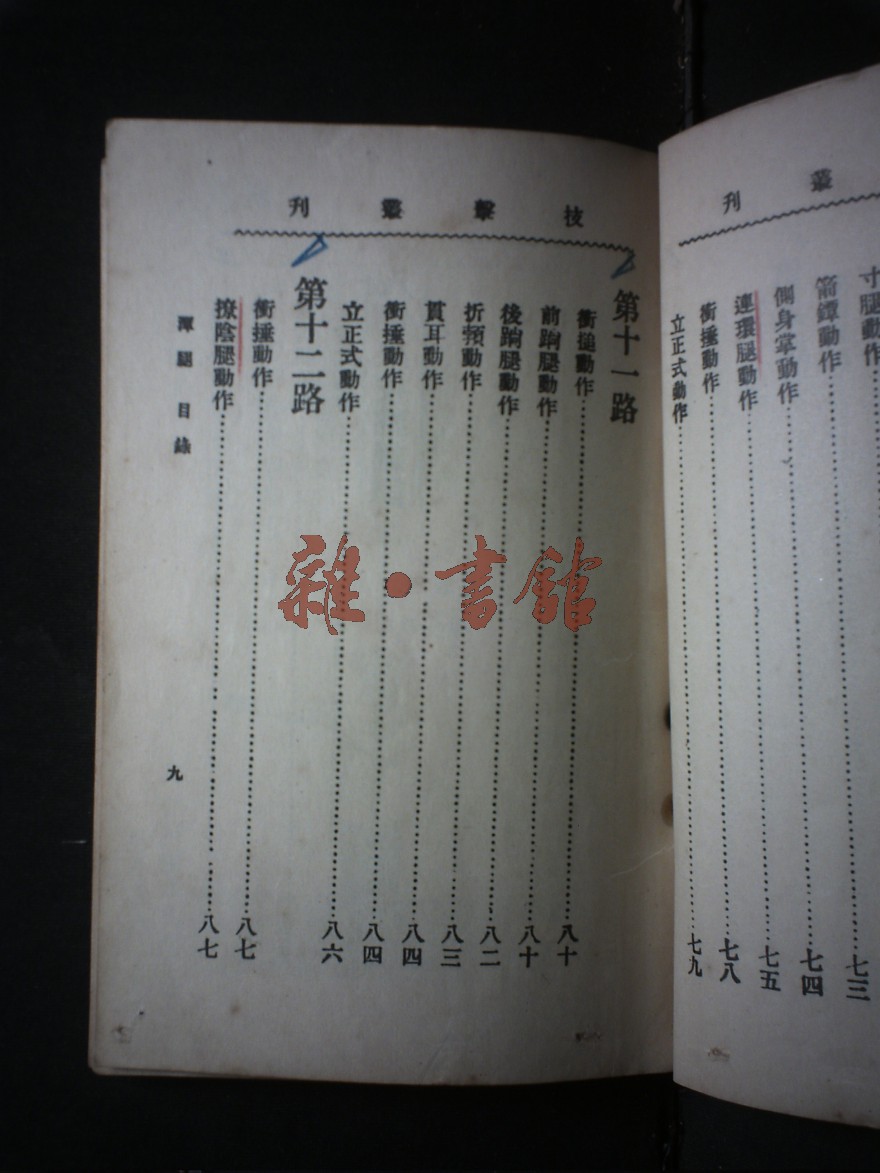 叢刊
寸腿動作……七三
箭鐔動作……七四
側身掌動作……七五
連環腿動作……七八
衝捶動作……
立正式動作……七九
技擊叢刊
第十一路
衝搥動作……八十
前蹁腿動作……八十
後蹁腿動作……八二
折頦動作……八三
貫耳動作……八四
衝捶動作……八四
立正式動作……八六
第十二路
衝捶動作……八七
撩陰腿動作……八七
潭腿目錄
九
雜·書館